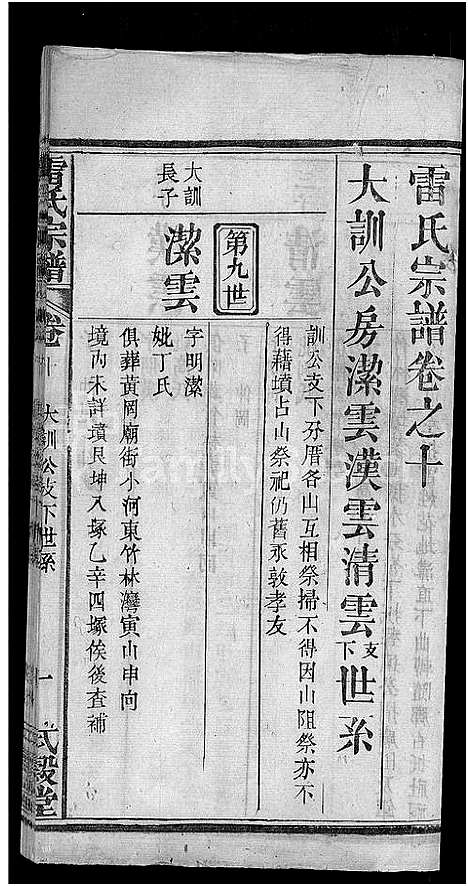 雷氏宗譜卷之十
大訓公房潔雲漢雲清雲支下世系
訓公支下分厝各山互相祭掃不得因山阻祭亦不
得藉墳占山祭祀仍舊永敦孝友
第九世
大訓
長子
潔雲
字明潔
妣丁氏
俱葬黃岡廟街小河東竹林灣寅山申向
境內未詳墳艮坤入塚乙辛四塚俟後查補
雷氏宗譜
卷十
大訓公支下世系
一
武毅堂